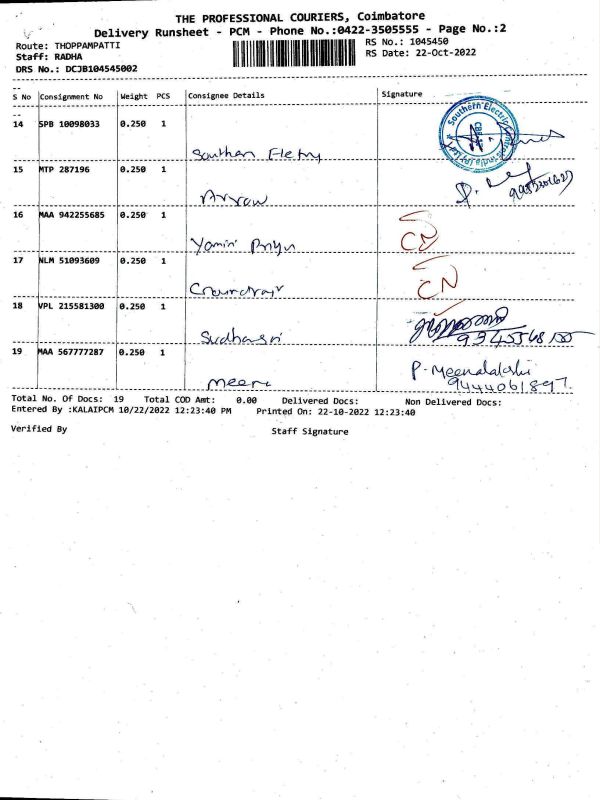 THE PROFESSIONAL COURIERS, Coimbatore
Delivery Runsheet - PCM - Phone No.:0422-3505555 - Page No.:2
Route: THOPPAMPATTI
RS No.: 1045450
Staff: RADHA
RS Date: 22-Oct-2022
DRS No.: DCJB104545002
S No Consignment No Weight PCS Consignee Details Signature
14 SPB 10098033 0.250 1
Southern Electrip
CBE
15 MTP 287196 0.250 1
16 MAA 942255685 0.250 1
Yamini Priya CN
17 NLM 51093609 0.250 1
CN
18 VPL 215581300 0.250 1
Sudhasri
19 MAA 567777287 0.250 1
P. Meenalakshi
meera 9444061897
Total No. Of Docs: 19 Total COD Amt: 0.00 Delivered Docs: Non Delivered Docs:
Entered By :KALAIPCM 10/22/2022 12:23:40 PM Printed On: 22-10-2022 12:23:40
Verified By Staff Signature